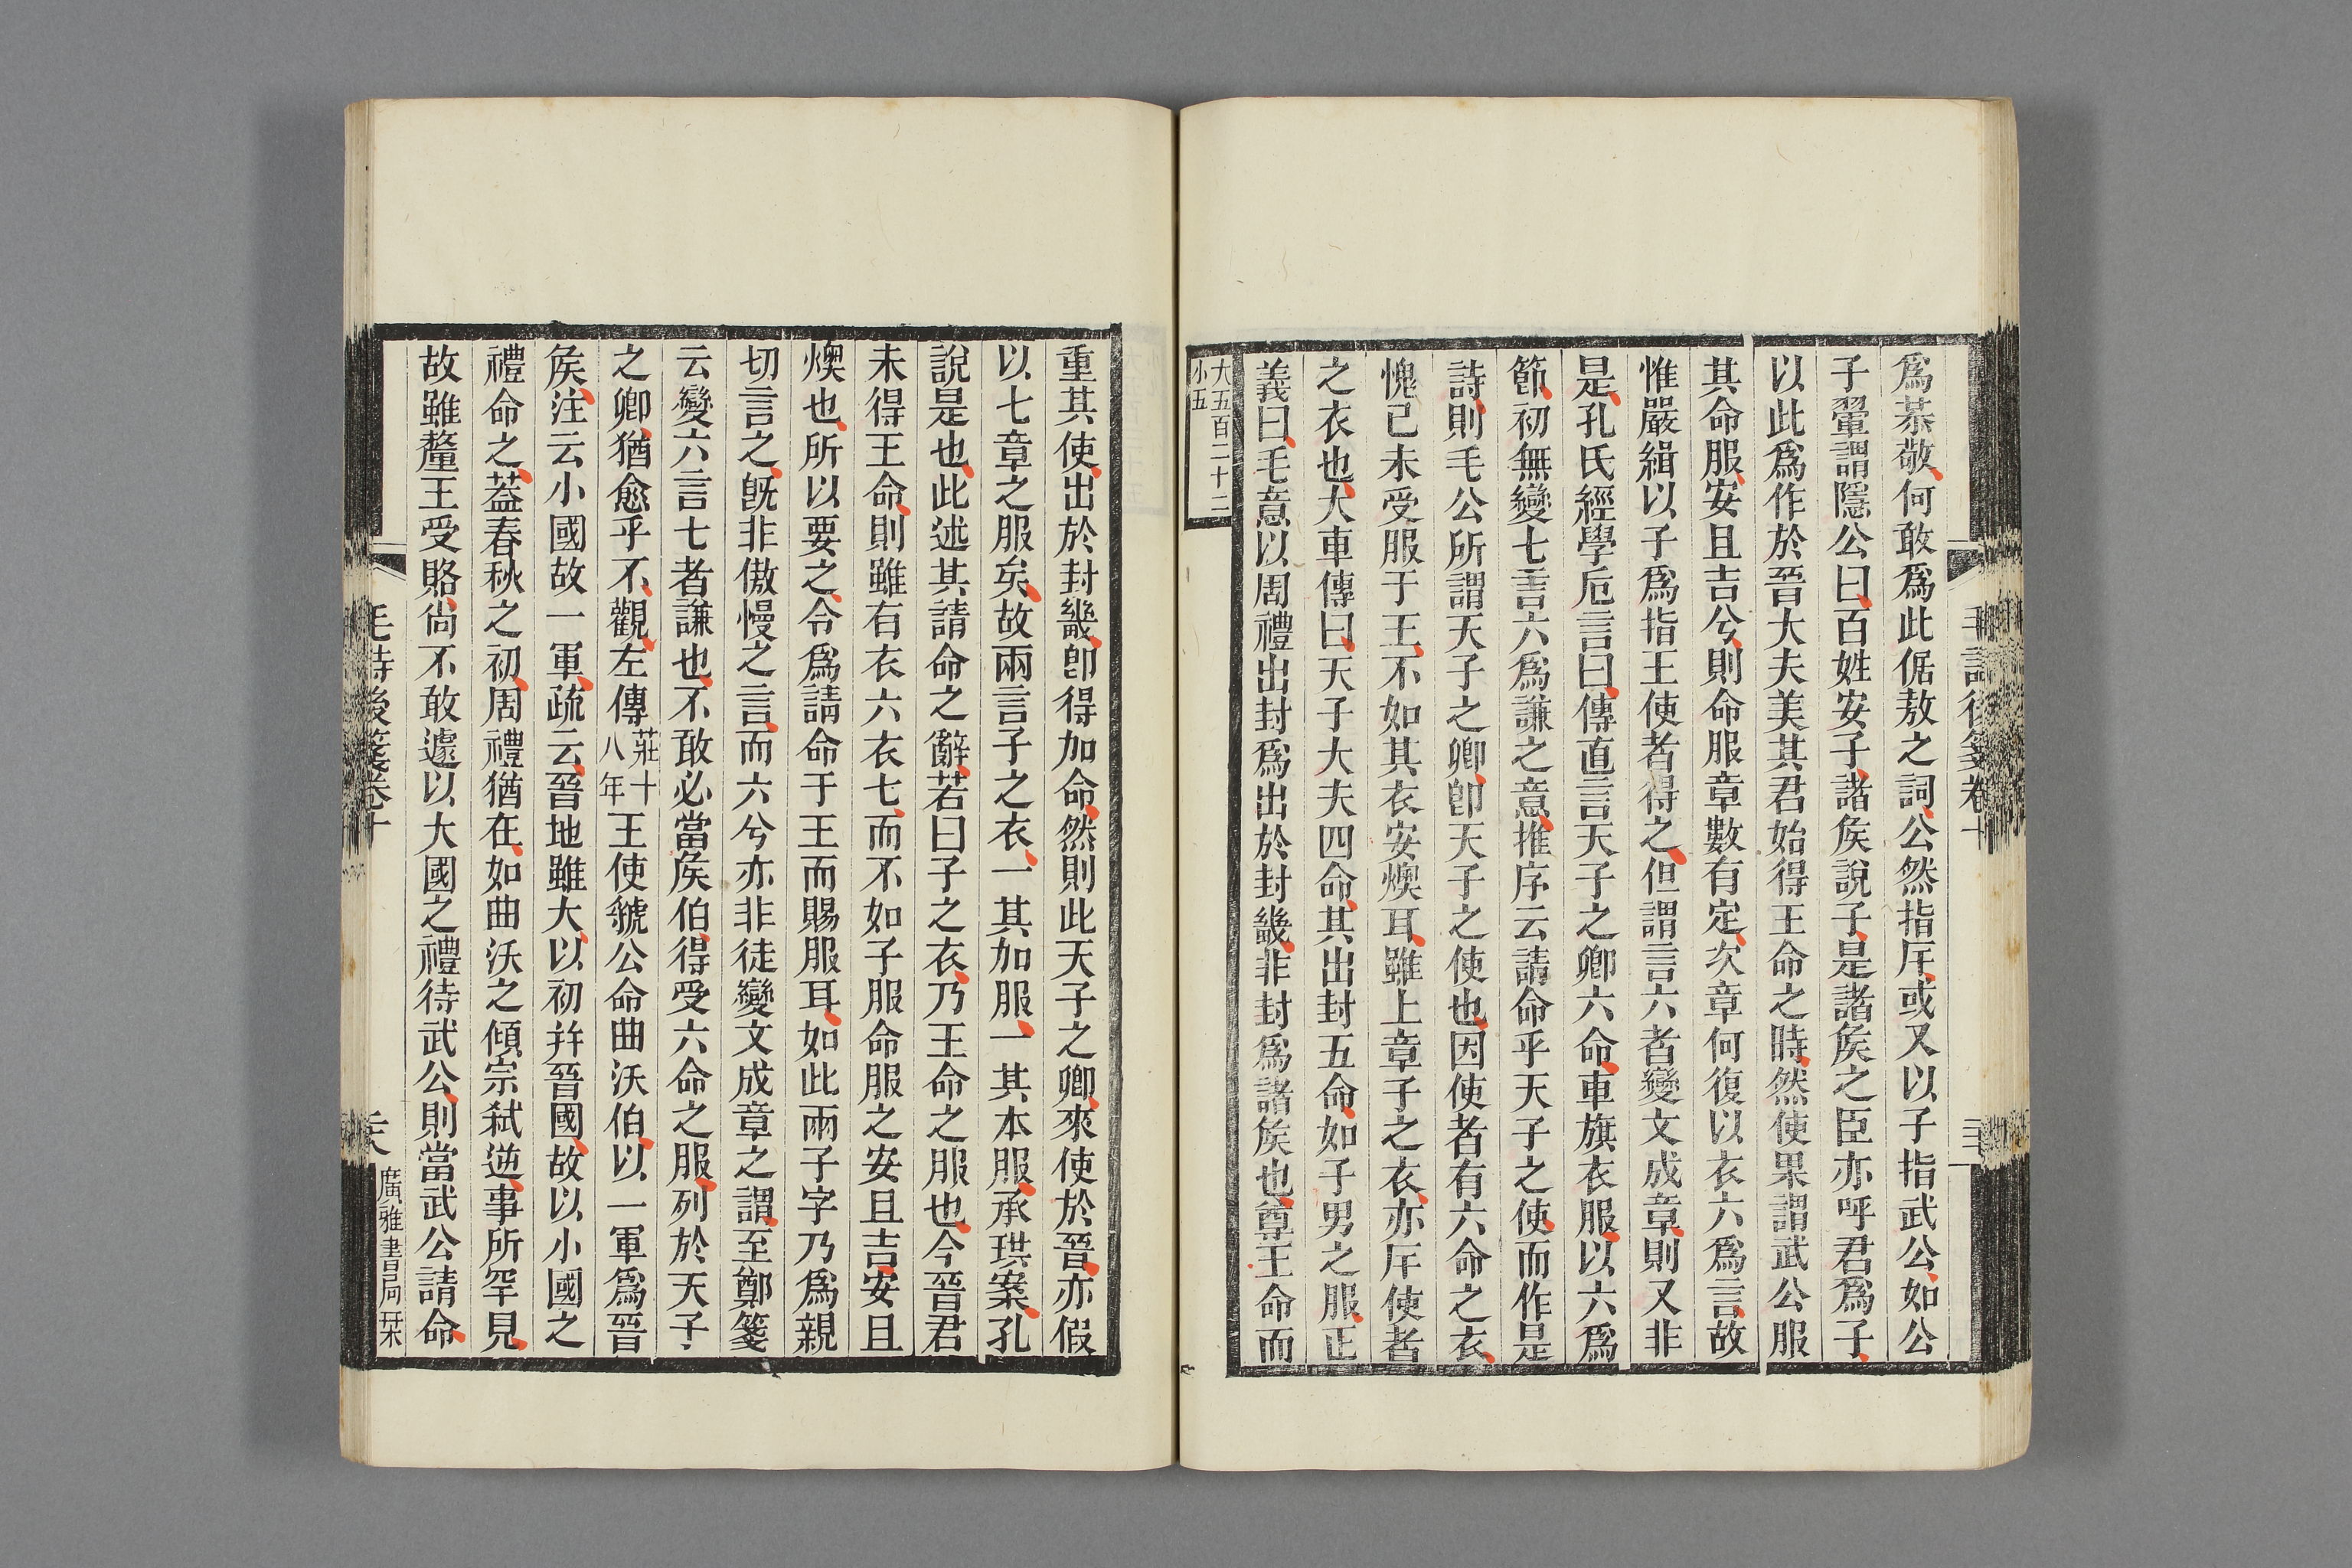 爲恭敬何敢爲此倨敖之詞公然指斥或又以子指武公如公
子翬謂隱公曰百姓安子諸矦說子是諸矦之臣亦呼君爲子
以此爲作於晉大夫美其君始得王命之時然使果謂武公服
其命服安且吉兮則命服章數有定次章何復以衣六爲言故
惟嚴緝以子爲指王使者得之但謂言六者變文成章則又非
是孔氏經學卮言曰傳直言天子之卿六命車旗衣服以六爲
節初無變七言六爲謙之意推序云請命乎天子之使而作是
詩則毛公所謂天子之卿卽天子之使也因使者有六命之衣
愧已未受服于王不如其衣安燠耳雖上章子之衣亦斥使者
之衣也大車傳曰天子大夫四命其出封五命如子男之服正
義曰毛意以周禮出封爲出於封畿非封爲諸矦也尊王命而
大五百二十二
小五
毛詩後箋卷十
重其使出於封畿卽得加命然則此天子之卿來使於晉亦假
以七章之服矣故兩言子之衣一其加服一其本服承珙案孔
說是也此述其請命之辭若曰子之衣乃王命之服也今晉君
未得王命則雖有衣六衣七而不如子服命服之安且吉安且
燠也所以要之令爲請命于王而賜服耳如此兩子字乃爲親
切言之旣非傲慢之言而六兮亦非徒變文成章之謂至鄭箋
云變六言七者謙也不敢必當矦伯得受六命之服列於天子
之卿猶愈乎不觀左傳莊十八年王使虢公命曲沃伯以一軍爲晉
矦注云小國故一軍疏云晉地雖大以初幷晉國故以小國之
禮命之葢春秋之初周禮猶在如曲沃之傾宗弒逆事所罕見
故雖釐王受賂尙不敢遽以大國之禮待武公則當武公請命
毛詩後箋卷十
廣雅書局栞